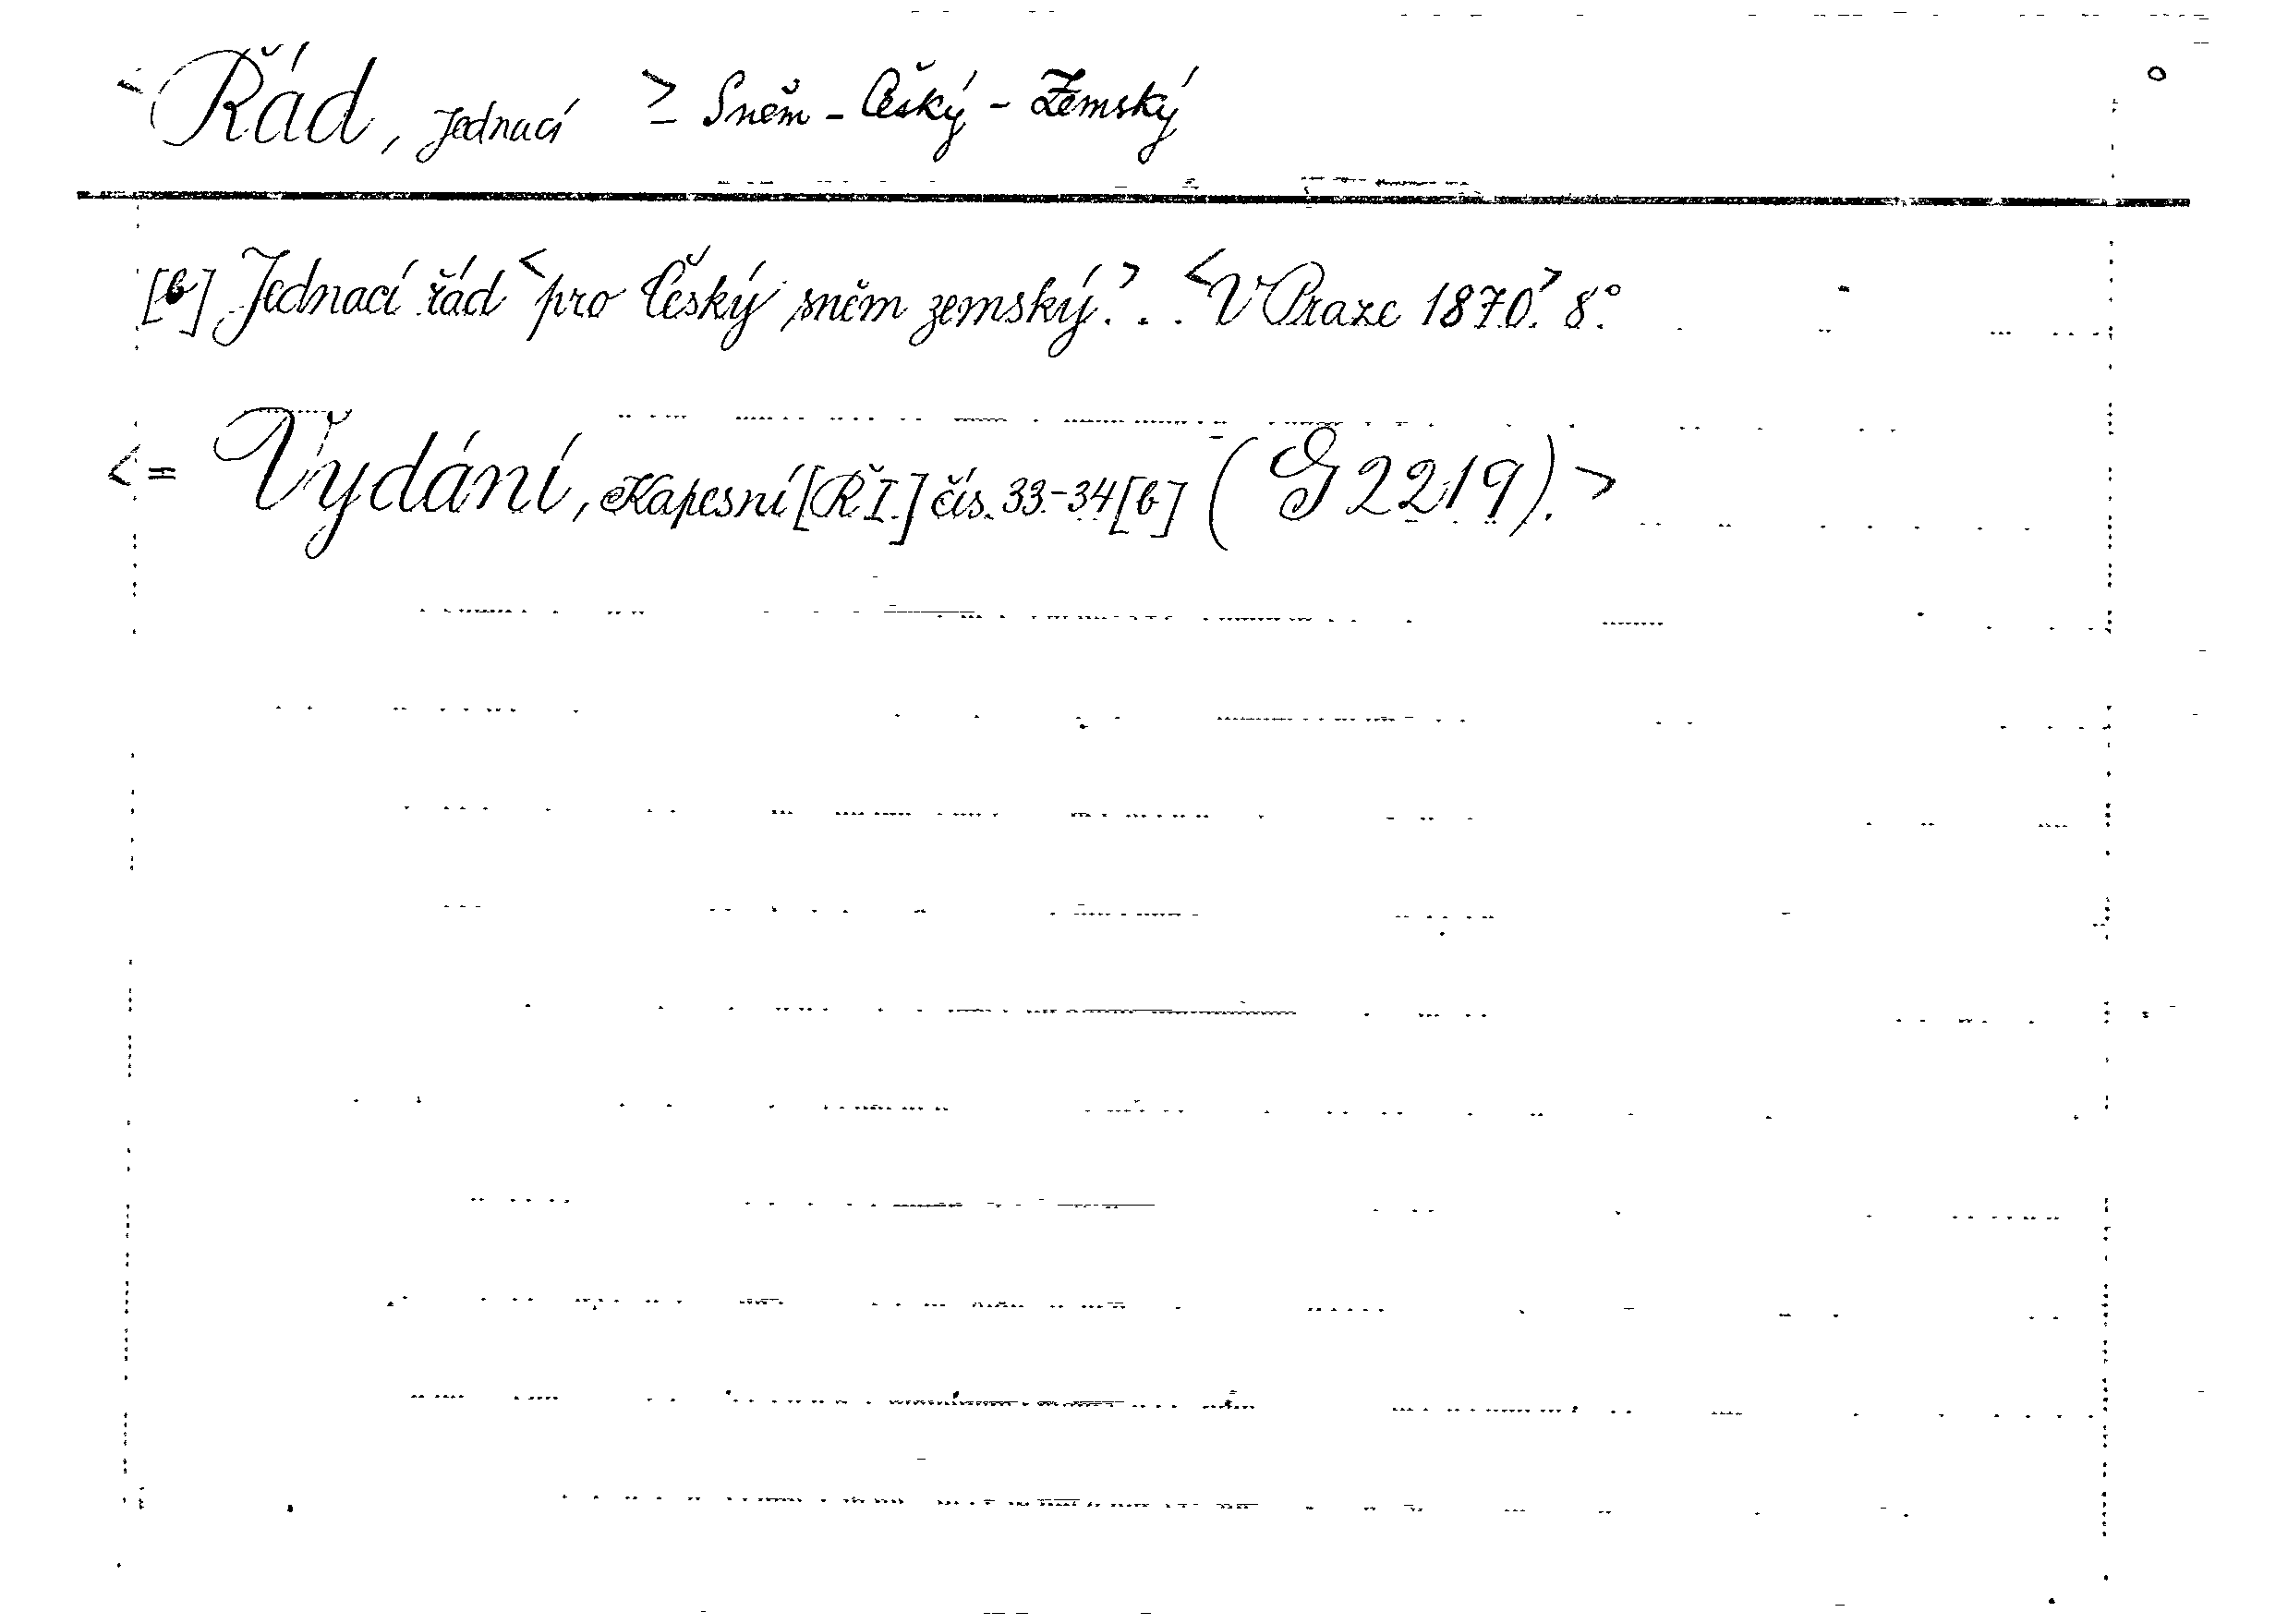 <Řád, Jednací > – Sněm – Český – Zemský
[b] Jednací řád <pro Český sněm zemský.> . . <V Praze 1870.> 8.°
< = Vydání, Kapesní [Ř.I.] čís. 33.–34 [b] (G 2219). >